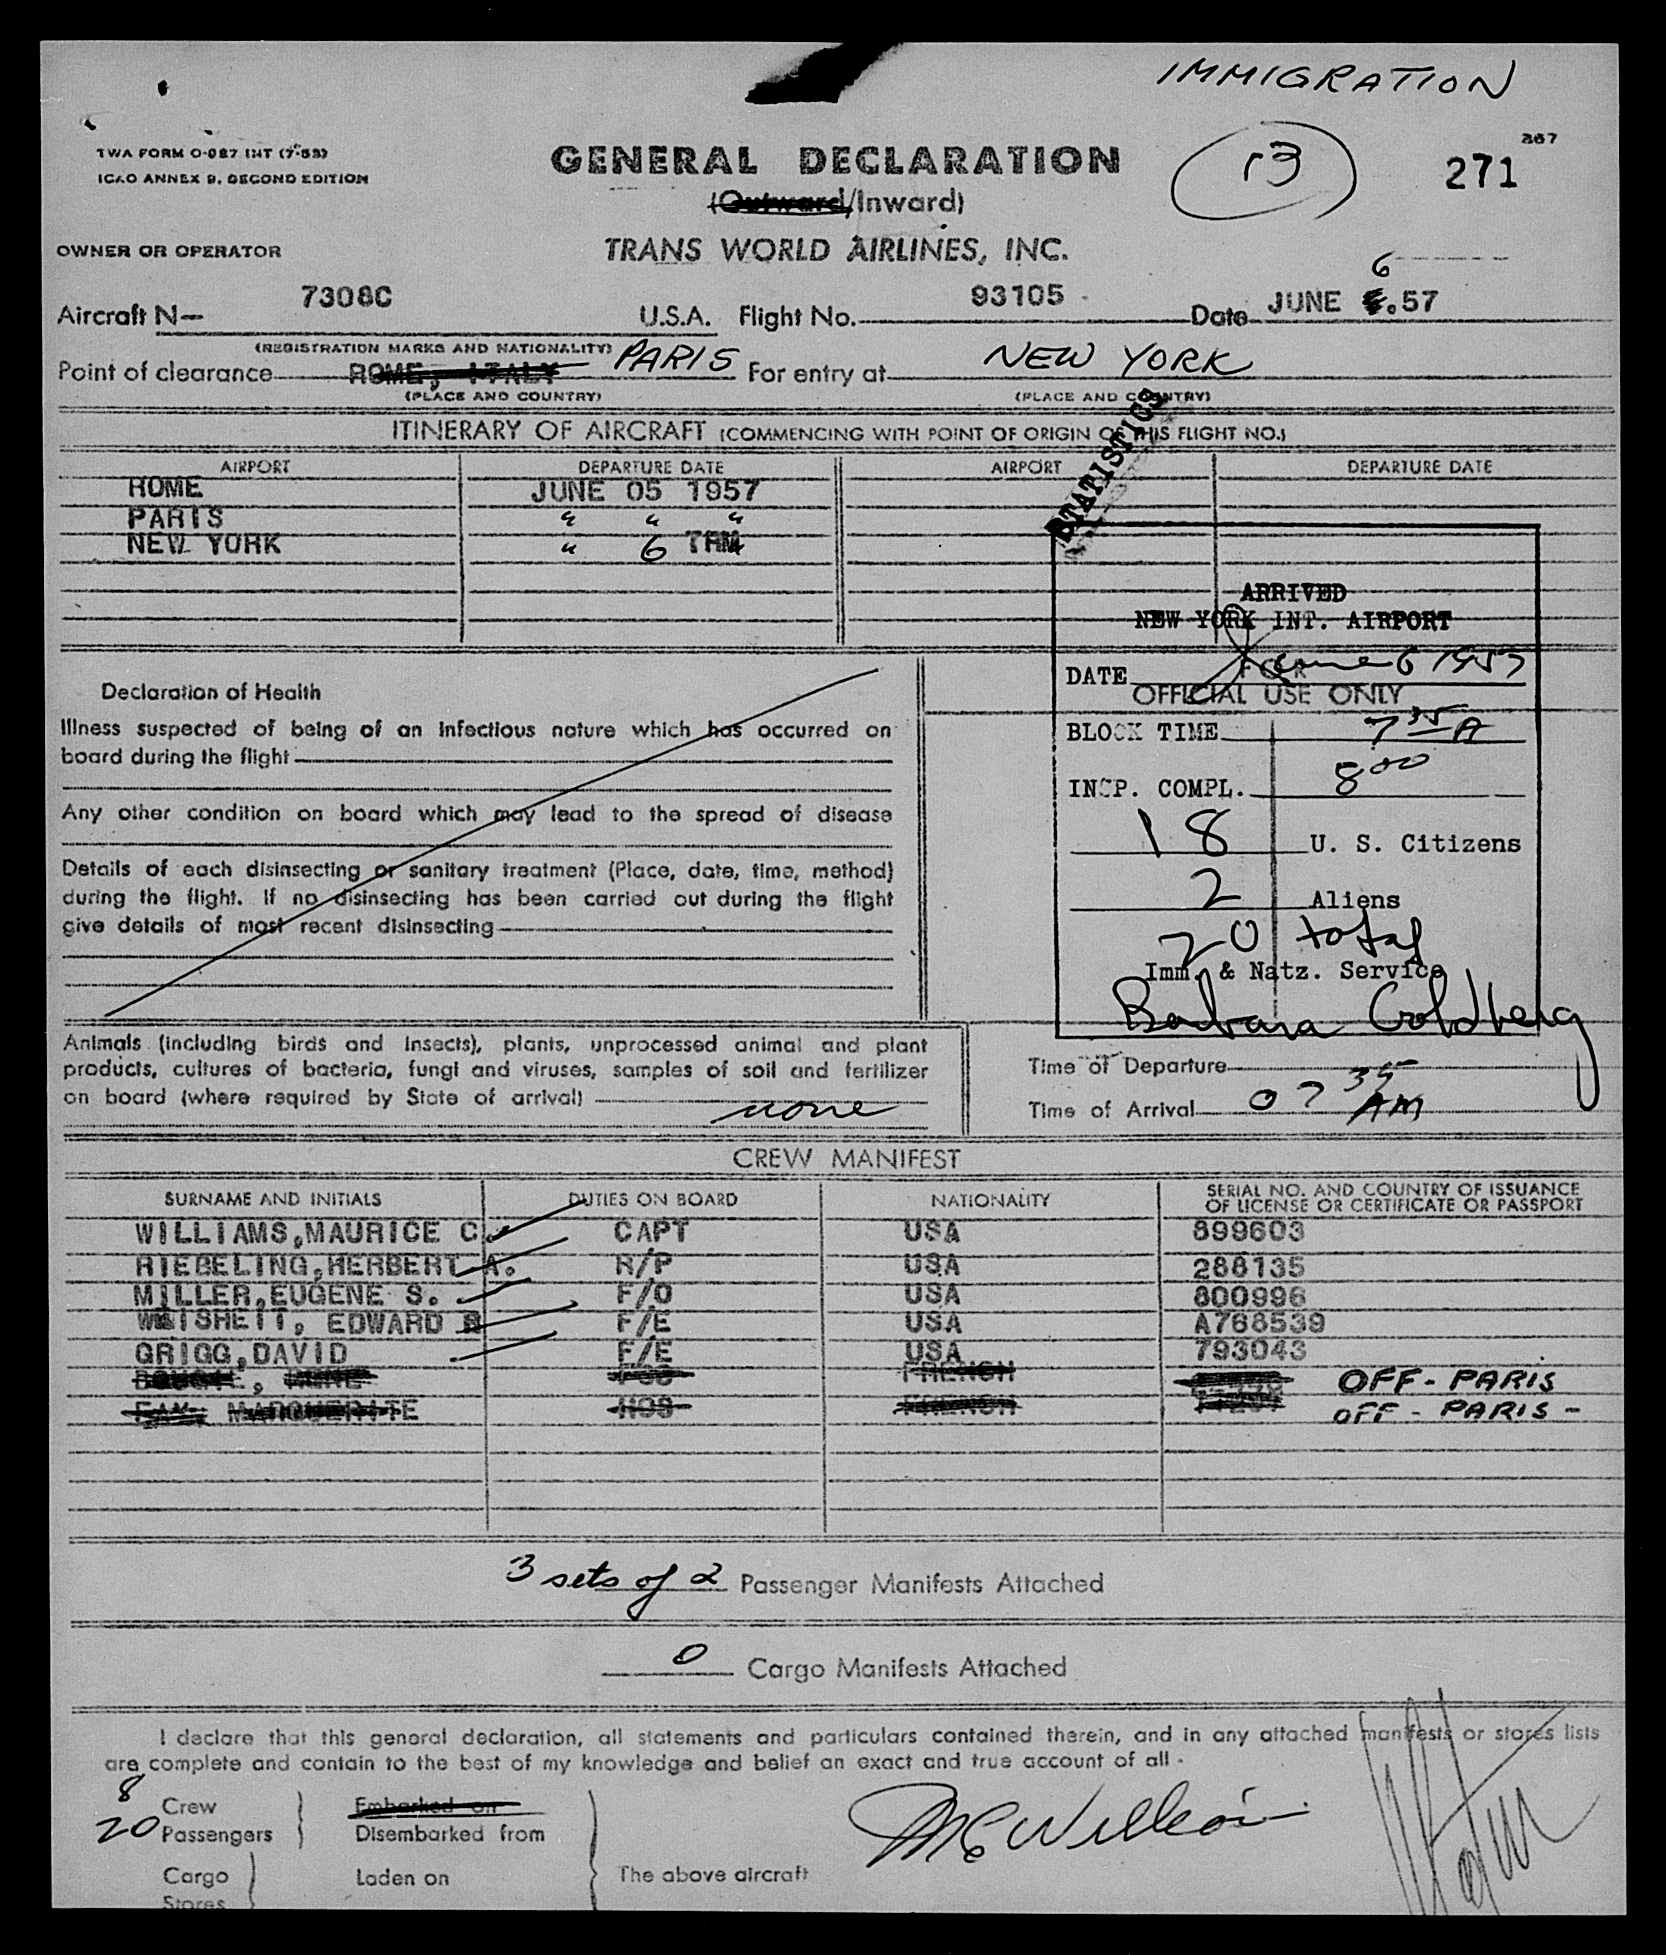 IMMIGRATION
TWA FORM O-087 INT (7-55)
ICAO ANNEX 9, SECOND EDITION
GENERAL DECLARATION
(Outward/Inward)
13
267
271
OWNER OR OPERATOR
TRANS WORLD AIRLINES, INC.
Aircraft N— 7308C U.S.A. Flight No. 93105 Date JUNE 6.57
(REGISTRATION MARKS AND NATIONALITY)
Point of clearance ROME, ITALY PARIS For entry at NEW YORK
(PLACE AND COUNTRY) (PLACE AND COUNTRY)
STATISTICS
ITINERARY OF AIRCRAFT (COMMENCING WITH POINT OF ORIGIN OF THIS FLIGHT NO.)
AIRPORT DEPARTURE DATE AIRPORT DEPARTURE DATE
ROME JUNE 05 1957
PARIS " " "
NEW YORK " 6 TRM
ARRIVED
NEW YORK INT. AIRPORT
DATE June 6 1957
FOR
OFFICIAL USE ONLY
BLOCK TIME 7 35 A
INSP. COMPL. 8 00
18 U. S. Citizens
2 Aliens
20 total
Imm. & Natz. Service
Barbara Goldberg
Declaration of Health
Illness suspected of being of an infectious nature which has occurred on
board during the flight
Any other condition on board which may lead to the spread of disease
Details of each disinsecting or sanitary treatment (Place, date, time, method)
during the flight. If no disinsecting has been carried out during the flight
give details of most recent disinsecting
Animals (including birds and insects), plants, unprocessed animal and plant
products, cultures of bacteria, fungi and viruses, samples of soil and fertilizer
on board (where required by State of arrival) none
Time of Departure
Time of Arrival 07 35 AM
CREW MANIFEST
SURNAME AND INITIALS DUTIES ON BOARD NATIONALITY SERIAL NO. AND COUNTRY OF ISSUANCE
OF LICENSE OR CERTIFICATE OR PASSPORT
WILLIAMS,MAURICE C. CAPT USA 899603
RIEBELING,HERBERT A. R/P USA 288135
MILLER,EUGENE S. F/O USA 800996
WEISHEIT, EDWARD R F/E USA A768539
GRIGG,DAVID F/E USA 793043
FRENCH OFF - PARIS
MARGUERITE HOS FRENCH OFF - PARIS -
3 sets of 2 Passenger Manifests Attached
0 Cargo Manifests Attached
I declare that this general declaration, all statements and particulars contained therein, and in any attached manifests or stores lists
are complete and contain to the best of my knowledge and belief an exact and true account of all -
8 Crew Embarked on
20 Passengers Disembarked from
Cargo Laden on The above aircraft
Stores